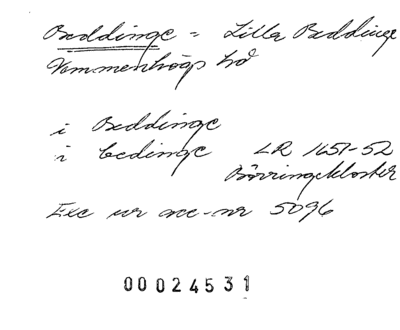 Beddinge = Lilla Beddinge
Vemmenhögs hd
i Beddinge
i bedinge LR 1651-52
Börringekloster
Exc ur acc-nr 5096
00024531